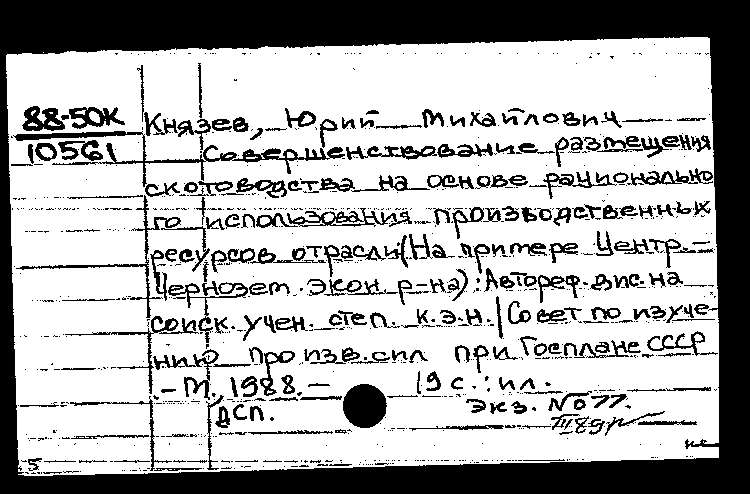 88-50К
10561
Князев, Юрий Михайлович
Совершенствование размещения
скотоводства на основе рационально
го использования производственных
ресурсов отрасли (На примере Центр.-
Чернозем. экон. р-на) : Автореф. дис. на
соиск. учен. степ. к.э.н. / Совет по изуче-
нию произв. сил при Госплане СССР
.- М., 1988. - 19 с. : ил.
ДСП. Экз. № 077.
5